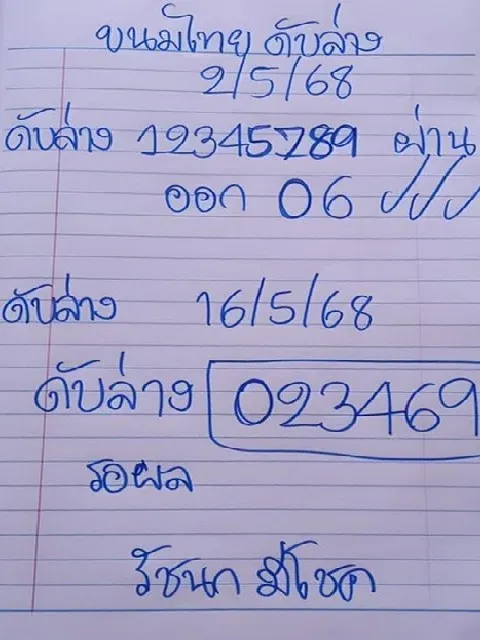 ขนมไทย ดับล่าง
2/5/68
ดับล่าง 12345789 ผ่าน
ออก 06 ✓✓✓
ดับล่าง 16/5/68
ดับล่าง 023469
รอผล
รัชนก มีโชค